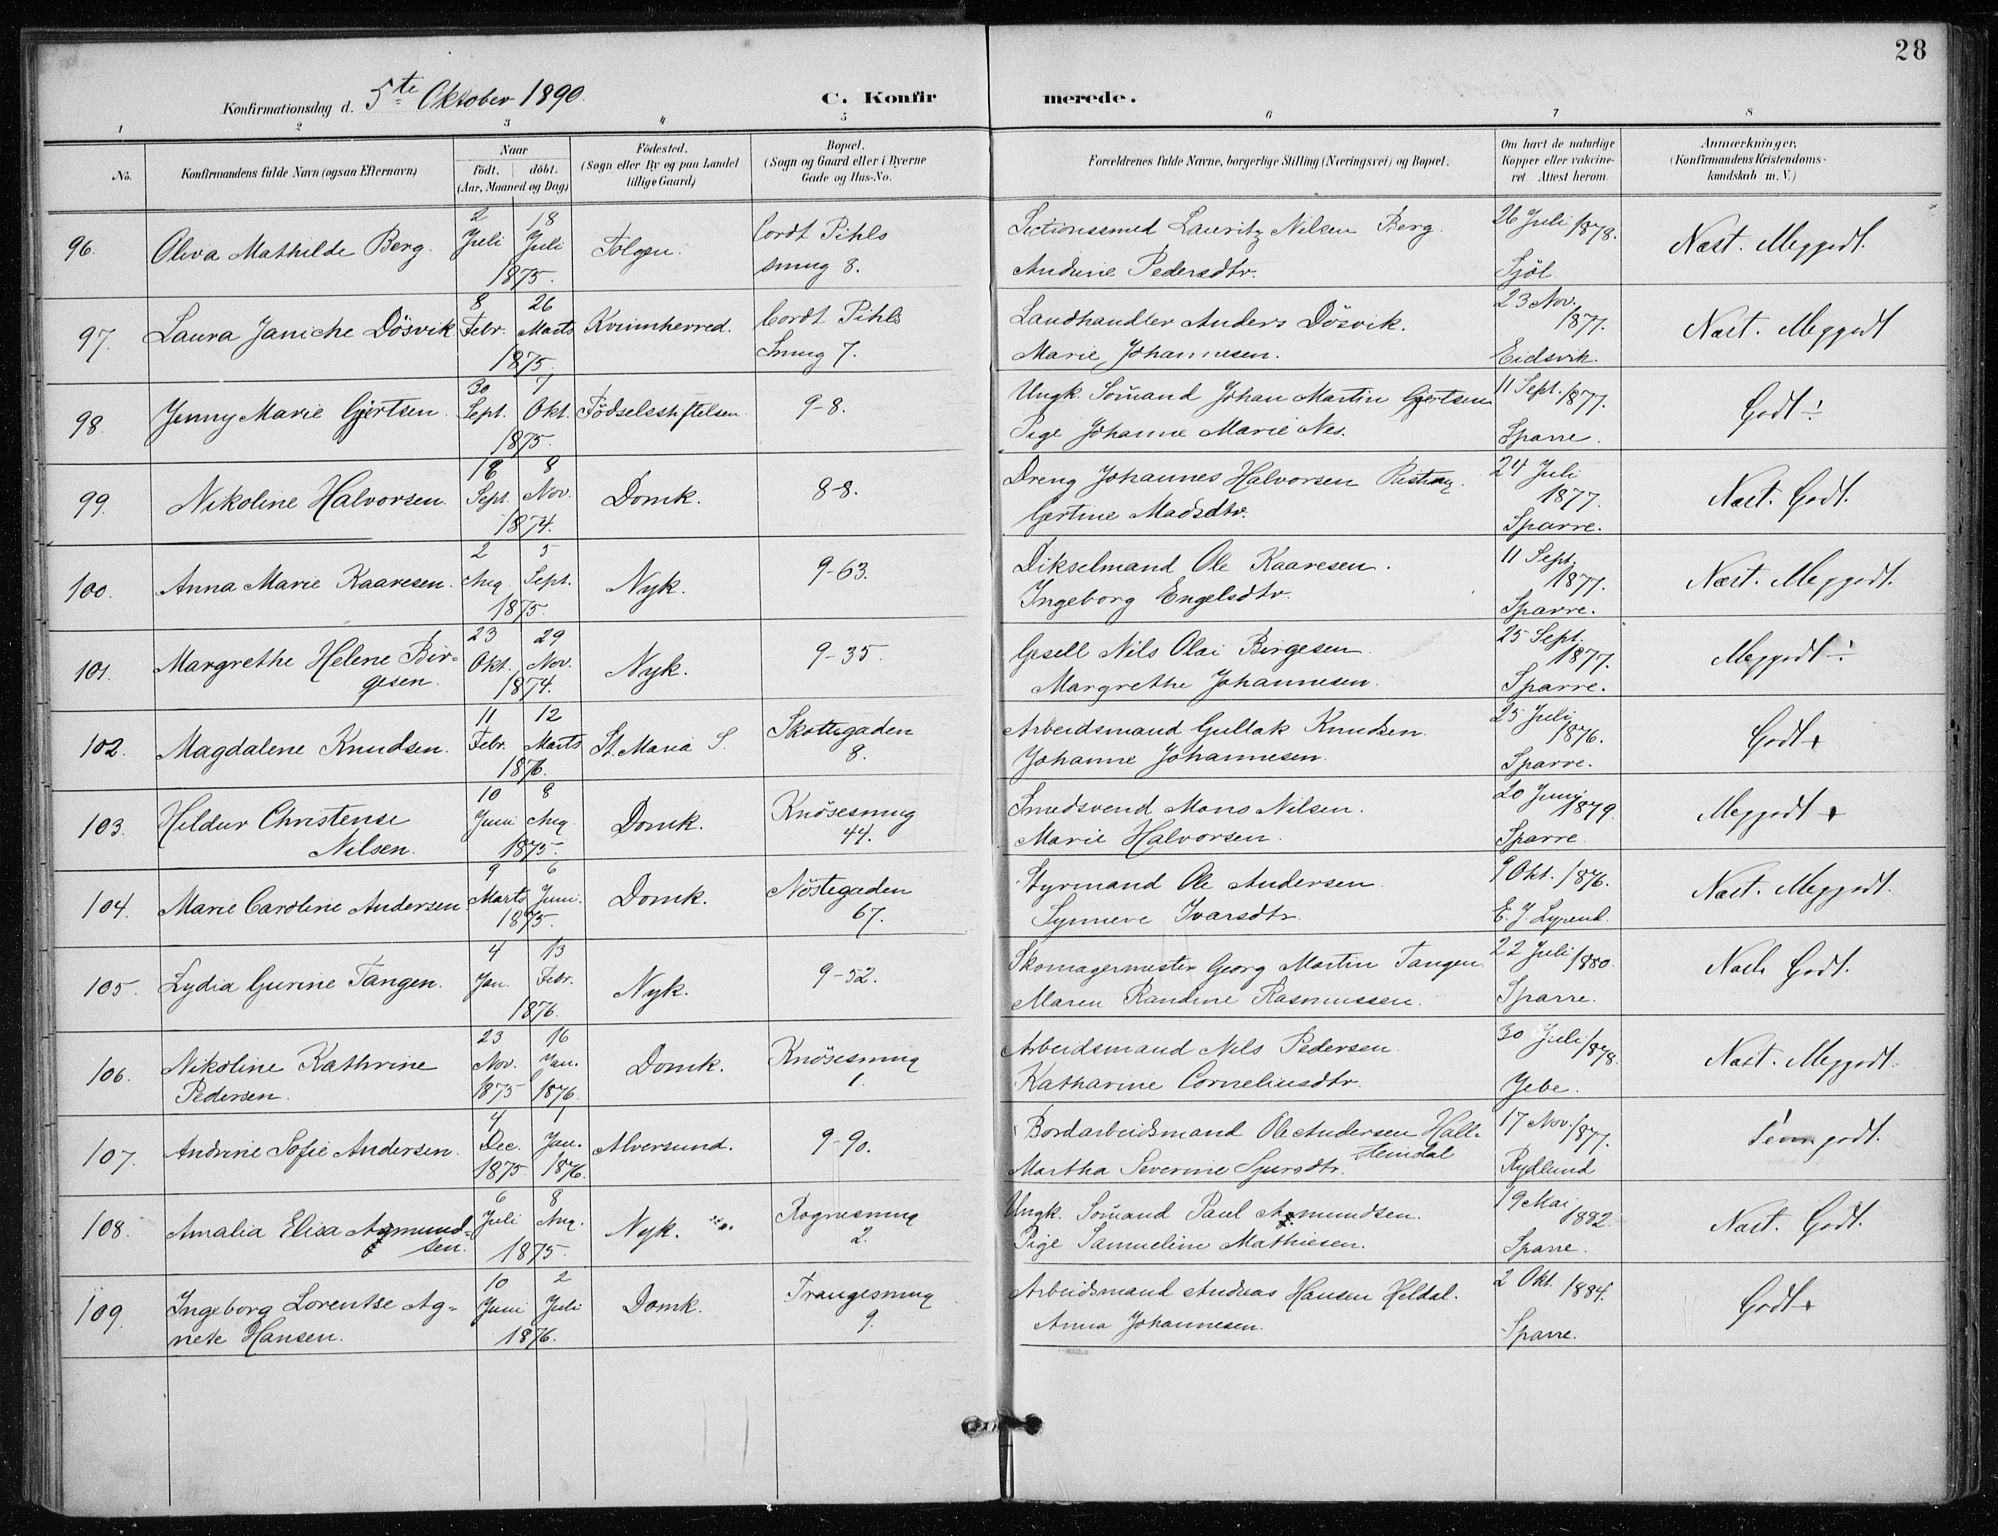 28
Konfirmationsdag d. 5te Oktober 1890.
C. Konfirmerede.
1 2 3 4 5 6 7 8
No.
Konfirmandens fulde Navn (ogsaa Efternavn)
Naar
födt. döbt.
(Aar, Maaned og Dag)
Födested.
(Sogn eller By og paa Landet
tillige Gaard)
Bopæl.
(Sogn og Gaard eller i Byerne
Gade og Hus-No.
Forældrenes fulde Navne, borgerlige Stilling (Næringsvei) og Bopæl.
Om havt de naturlige
Kopper eller vakcine-
ret Attest herom.
Anmærkninger.
(Konfirmandens Kristendoms-
kundskab m. V.)
96. Oliva Mathilde Berg. 2 Juli 18 Juli 1875. Cordt Pihls
smug 8.
Sectionssmed Lauritz Nilsen Berg.
Andrine Pedersdtr.
26 Juli 1878.
Sjöl.
Næst. Meggodt.
97. Laura Janiche Dösvik 8 Febr. 26 Marts 1875. Kvinnherred. Cordt Pihls
Smug 7.
Landhandler Anders Dösvik.
Marie Johannesen.
23 Nov. 1877.
Eidsvik.
Næst. Meggodt
98. Jenny Marie Gjertsen. 30 Sept. 7 Okt. 1875. Födselsstiftelsen. 9-8.
Ungk. Sömand Johan Martin Gjertsen
Pige Johanne Marie Nes.
11 Sept. 1877.
Sparre.
Godt ÷
99. Nikoline Halvorsen. 18 Sept. 8 Nov. 1874. Domk. 8-8.
Dreng Johannes Halvorsen
Gertine Madsdtr.
24 Juli 1877.
Sparre.
Næst. Godt.
100. Anna Marie Kaaresen. 2 Aug. 5 Sept. 1875. Nyk. 9-63.
Dikselmand Ole Kaaresen.
Ingeborg Engelsdtr.
11 Sept. 1877.
Sparre.
Næst. Meggodt.
101. Margrethe Helene Bir-
gesen. 23 Okt. 29 Nov. 1874. Nyk. 9-35.
Gesell Nils Olai Birgesen.
Margrethe Johannesen.
25 Sept. 1877.
Sparre.
Meggodt ÷
102. Magdalene Knudsen. 11 Febr. 12 Marts 1876. St. Maria S. Skottegaden
8.
Arbeidsmand Gullak Knudsen.
Johanne Johannesen.
25 Juli 1876.
Sparre.
Godt +
103. Heldur Christense
Nilsen. 10 Juni 8 Aug. 1875. Domk. Knösesmug
44.
Smedsvend Mons Nilsen.
Marie Halvorsen.
20 Juni 1879.
Sparre.
Meggodt +
104. Marie Caroline Andersen 9 Marts 6 Juni. 1875. Domk. Nöstegaden
67.
Styrmand Ole Andersen.
Synneve Ivarsdtr.
9 Okt. 1876.
E. J.
Næst. Meggodt.
105. Lydia Gurine Tangen. 4 Jan. 13 Febr. 1876. Nyk. 9-52.
Skomagermester Georg Martin Tangen.
Maren Randine Rasmussen.
22 Juli 1880.
Sparre.
Godt.
106. Nikoline Kathrine
Pedersen. 23 Nov. 1875 16 Jan. 1876. Domk. Knösesmug
1.
Arbeidsmand Nils Pedersen.
Katharine Corneliusdtr.
30 Juli 1878.
Jebe.
Næst. Meggodt.
107. Andrine Sofie Andersen. 4 Dec. 1875 1 Jan. 1876. Alversund. 9-90.
Bordarbeidsmand Ole Andersen Hall-
steindal
Martha Severine Sjursdtr.
17 Nov. 1877.
Rydland
godt.
108. Amalia Elisa Asmund-
sen. 6 Juli 8 Aug. 1875. Nyk. Rognesmug
2.
Ungk. Sömand Paul Asmundsen.
Pige Samueline Mathiesen.
19 Mai 1882.
Sparre.
Næst. Godt.
109. Ingeborg Lorentse Ag-
nete Hansen. 10 Juni 2 Juli 1876. Domk. Trangesmug
9.
Arbeidsmand Andreas Hansen Heldal.
Anna Johannesen.
2 Okt. 1884.
Sparre.
Godt +